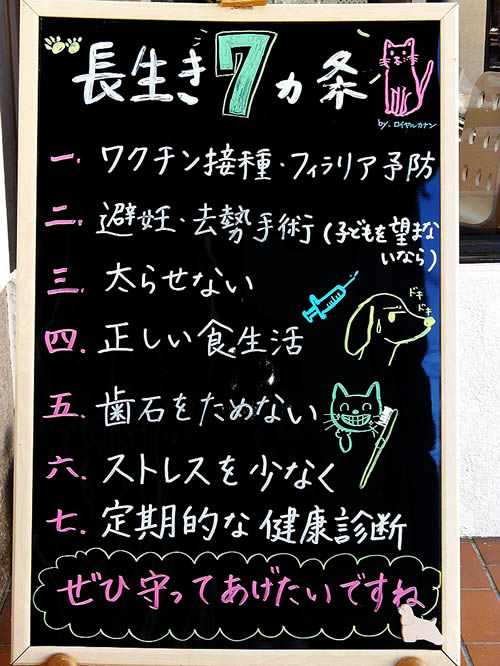 長生き7ヵ条
by.ロイヤルカナン
一.ワクチン接種・フィラリア予防
二.避妊・去勢手術(子どもを望まな
いなら)
三.太らせない
四.正しい食生活
ドキ
ドキ
五.歯石をためない
六.ストレスを少なく
七.定期的な健康診断
ぜひ守ってあげたいですね